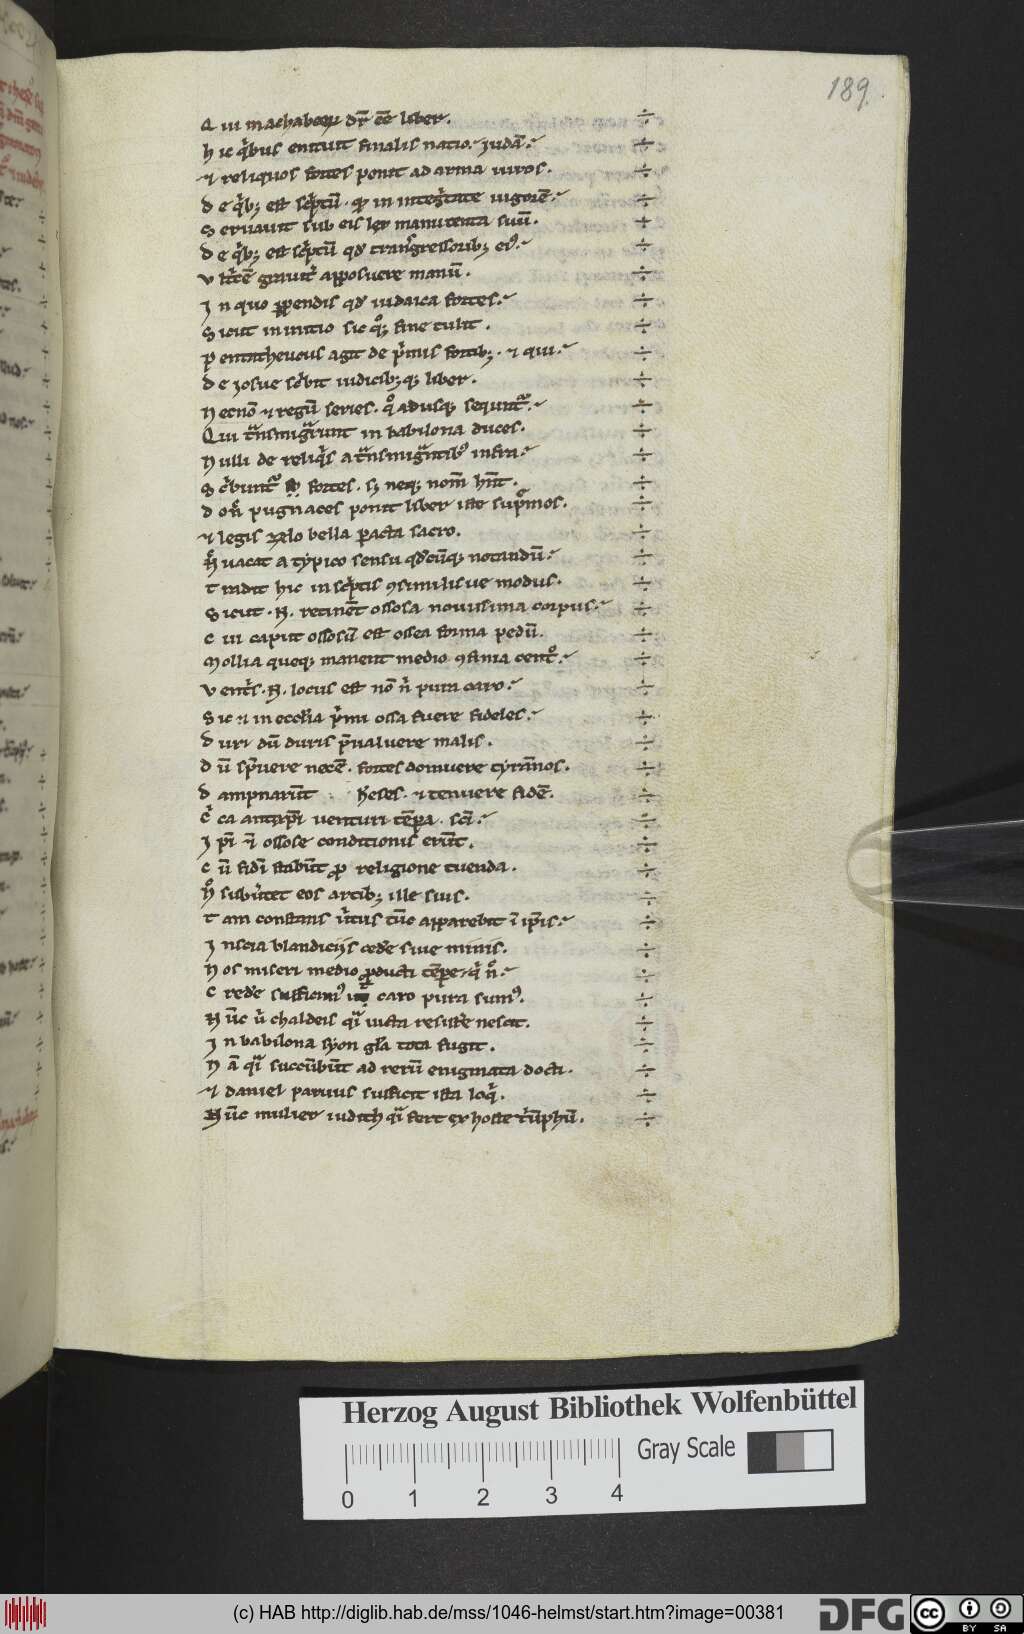 189
Qui machabeoꝝ dr̄ eē liber.
hic q̇bus enituit finalis natio. iudā.
⁊ reliquos fortes ponit ad arma viros.
De q̇bꝫ est sc̓ptū. qͥ in integ̓tate vigorē.
Seruauit sub eis lex manutenta suū.
De q̇bꝫ est sc̓ptū qd̓ transgressoribꝫ ei⁹.
Vltᷓcē grauit̓ apposuere manū.
In quo ꝑpendis qd̓ iudaica fortes.
Sicut in initio sic qͦꝫ fine tulit.
Pentatheucus agit de p̓mis fortibꝫ. ⁊ qui.
De iosue sc̓bit iudicibꝫqꝫ liber.
Necnō ⁊ regū series. qͦ adusqꝫ sequnt᷑.
Qui tᷓnsmigᷓrunt in babilona duces.
Nulli de reliq̇s a tᷓnsmigᷓntibꝰ infra.
Sc̓bunt᷑ fortes. sꝫ neqꝫ nom̄ hn̄t.
pugnaces ponit liber iste sup̄mos.
⁊ legis zelo bella ꝑacta sacro.
vacat a typico sensu qd̓cūqꝫ notandū.
Tradit hic in sc̓ptis ꝯsimilisue modus.
Sicut. N. retinēt ossosa novissima corpus.
Cui caput ossosū est ossea forma pedū.
Mollia queqꝫ manent medio ꝯfinia centͦ.
Vent̓s. N. locus est nō n̓ pura caro.
Sic ⁊ in eccl̓ia p̓mi ossa fuere fideles.
Duri dū duris p̄valuere malis.
Dū sp̓vere necē. fortes domuere tyrānos.
Dampnarūt heses. ⁊ tenuere fidē.
C̓ca antixp̄i venturi tēpora. sc̄i.
Ip̄i ī ossose conditionis erūt.
Cū fidī stabūt ꝓ religione tuenda.
Nͦ subv̓tet eos artibꝫ ille suis.
Tam constans v̓tus tūc apparebit ī ip̄is.
Inscia blandiciis ced̓e sive minis.
Nos miseri medio ꝓducti tēpore q̇ nͦ.
Cred̓e sufficim⁹ caro pura sum⁹.
Nūc v̓ chaldeis qᷓi iuxta resist̓e nescit.
In babilona syon gl̓a tota fugit.
Nā qᷓi succūbūt ad rerū enigmata docti.
⁊ daniel parvus sufficit ista loq̇.
Nūc mulier iudith qᷓi fert ex hoste t̓ūphū.
Herzog August Bibliothek Wolfenbüttel
Gray Scale
0 1 2 3 4
(c) HAB http://diglib.hab.de/mss/1046-helmst/start.htm?image=00381
DFG
cc BY SA